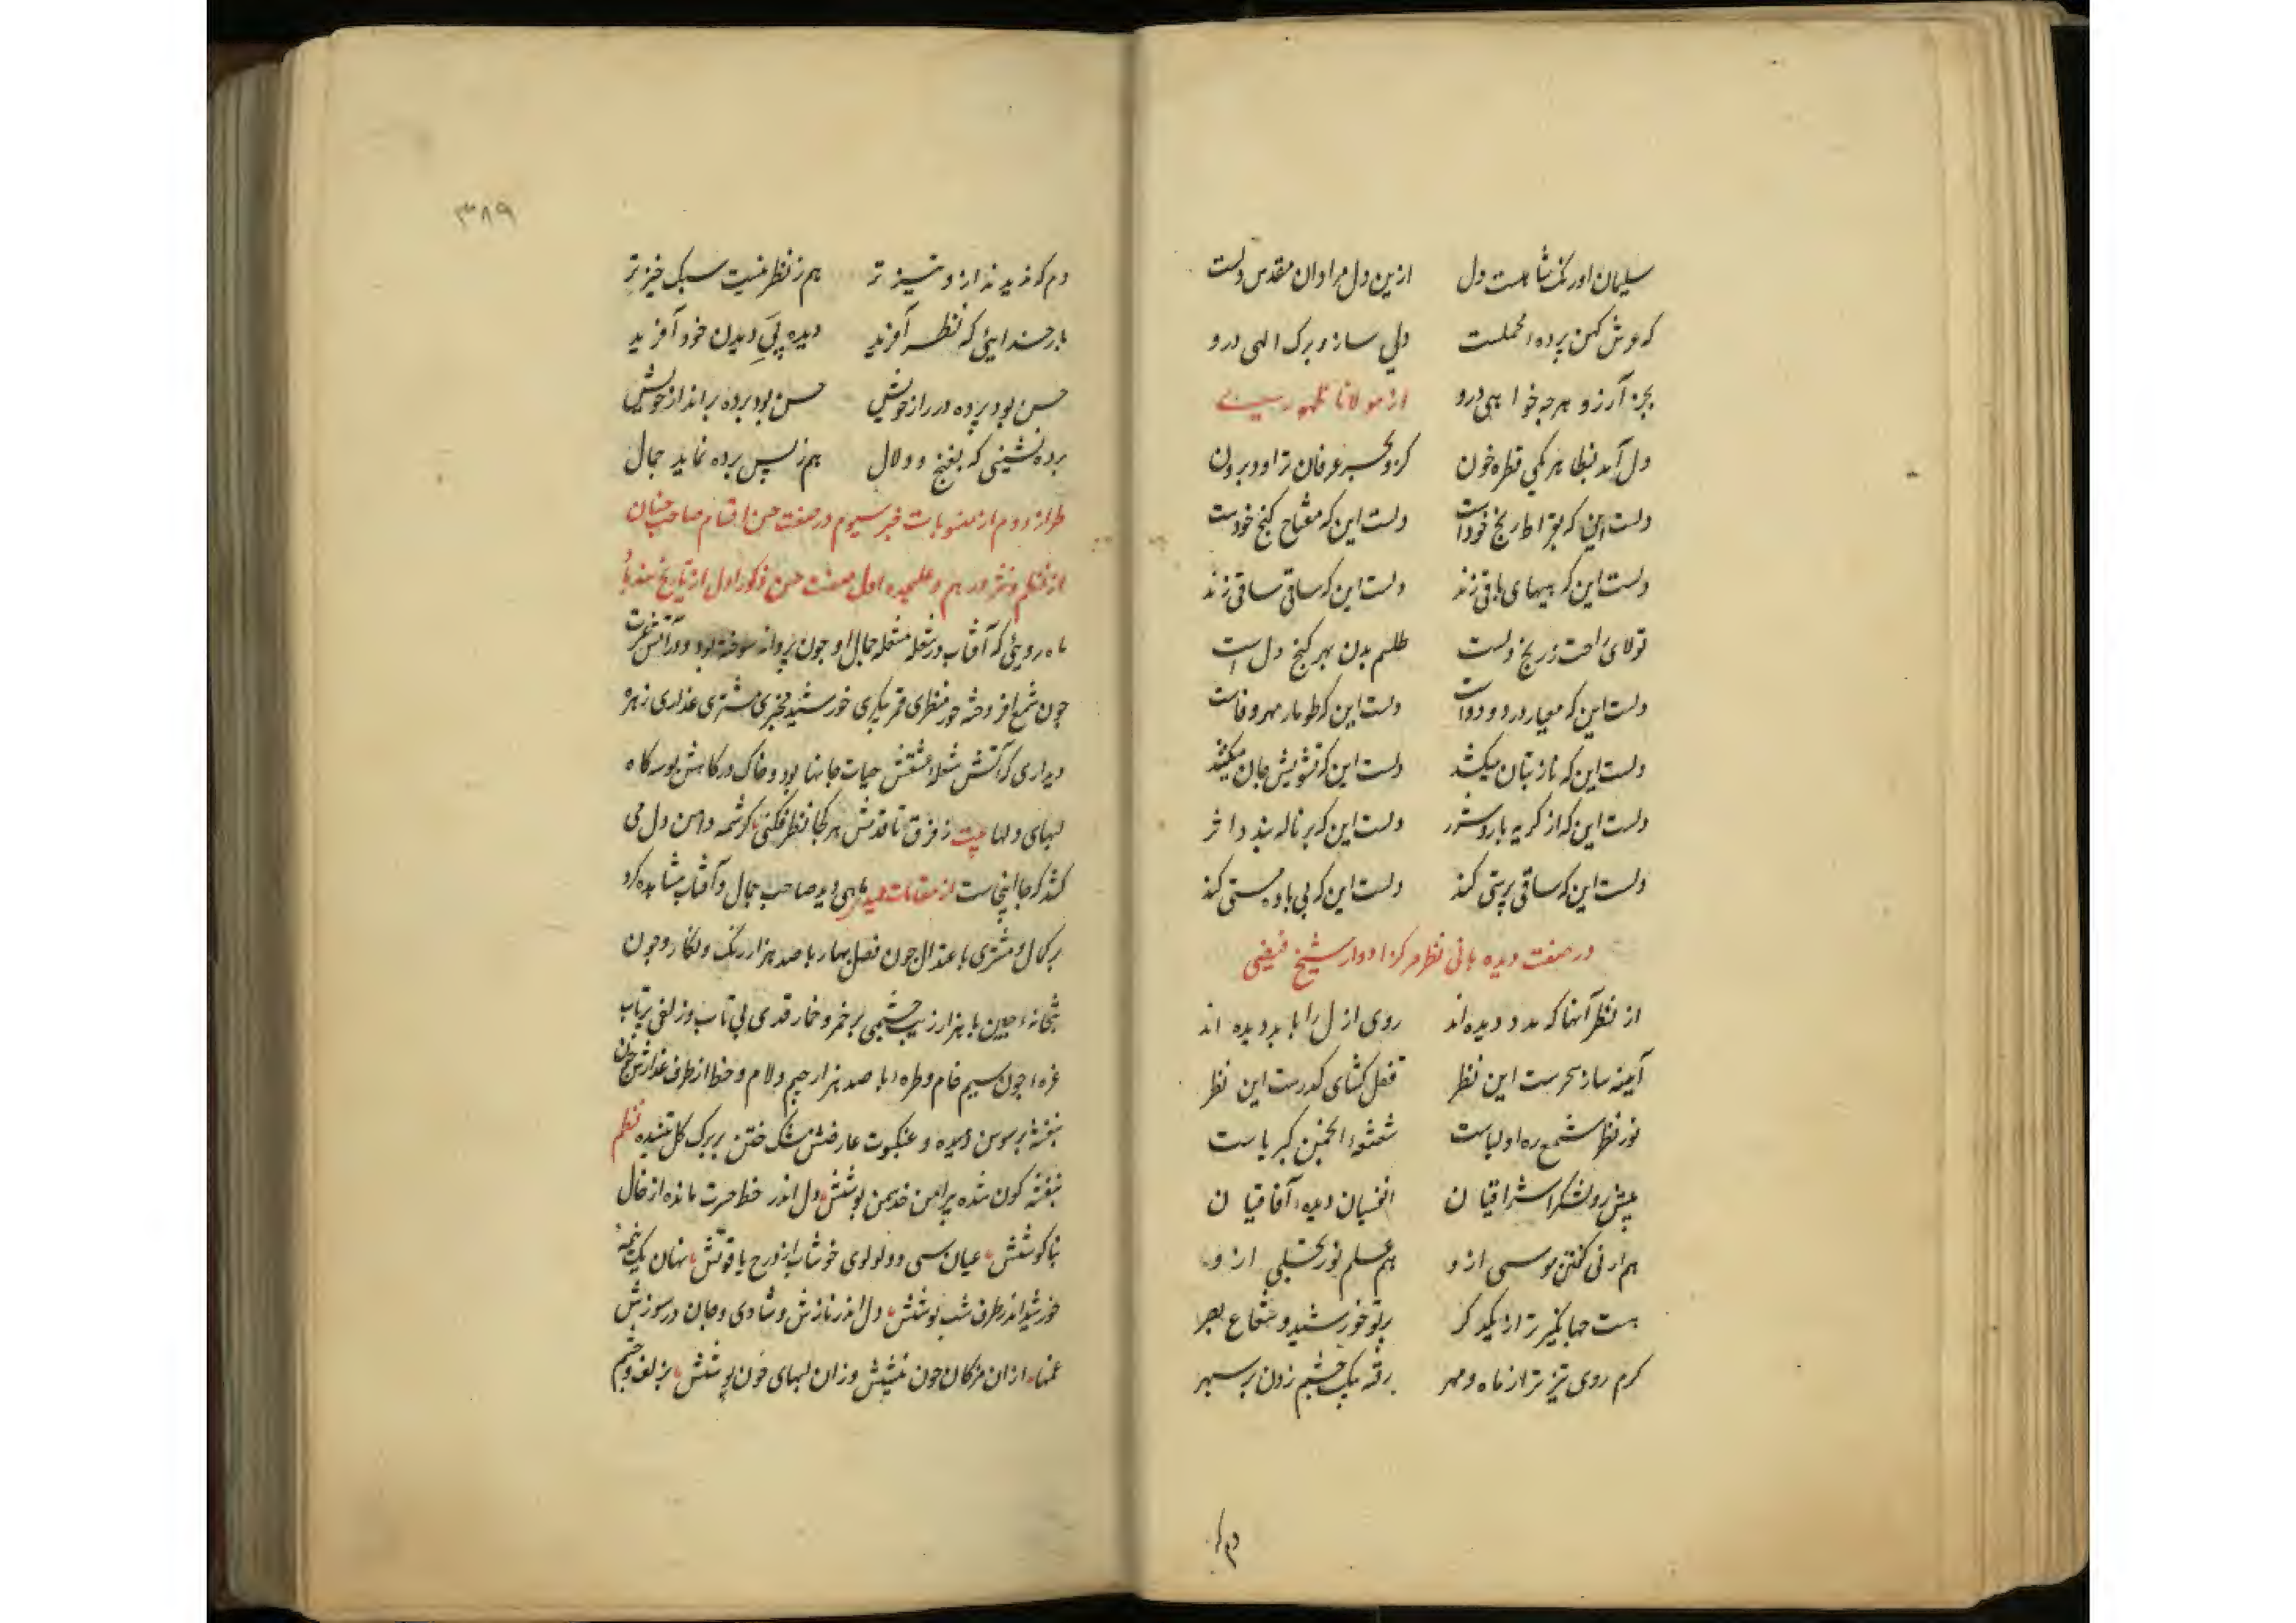 سلیمان اورنک شاهست دل ازین دل مراد آن مقدس دلست
که عرش کهن پرده محملست دلی ساز و برک الهی درو
بجز آرزو هرچه خواهی درو از مولانا ظهوری
دل آمد بظاهر یکی قطره خون کزو بحر عرفان تراود برون
دلست این که بقراط رنج خودست دلست این که مفتاح کنج خودست
دلست این که هیهای باقی زند دلست این که ساقی ساقی زند
تولای راحت ز رنج دلست طلسم بدن بهر کنج دل است
دلست این که معیار درد و دواست دلست این که طومار مهر و وفاست
دلست این که ناز بتان میکشد دلست این که تشویش جان میکشد
دلست این که از کریه بارد شرر دلست این که بر ناله بندد اثر
دلست این که ساقی پرستی کند دلست این که بی باده مستی کند
در صفت دیده بانی نظر مرکز ادوار شیخ فیضی
از نظر آنها که مدد دیده اند روی ازل را بابد دیده اند
آینه ساز سحرست این نظر قفل کشای کدرست این نظر
نور نظر شمع ره اولیاست شعشعهٔ انجمن کبریاست
پیش رو لشکر اشراقیان انفسیان دیدهٔ آفاقیان
هم ارنی کفتن موسی ازو هم علم نور تجلی ازو
هست جهانکیرتر از یکدکر پرتو خورشید و شعاع بصر
کرم روی تیزتر از ماه و مهر رفته بیک چشم زدن بر سپهر
دم که
۳۸۹
دم که ندیدند ازو تیزتر هم ز نظر نیست سبک خیزتر
بار خدایی که نظر آفرید دیده پی دیدن خود آفرید
حسن بود پرده در راز خویش حسن بود پرده برانداز خویش
پرده نشینی که بغنج و دلال هم ز پس پرده نماید جمال
طراز دوم از منسوبات خبر سیوم در صفت حسن اقسام صاحب حسنان
از نظم و نثر در هم و علیحده اول صفت حسن ذکور اول از تاریخ هند
ماه رویی که آفتاب در شعله مشعله جمال او چون پروانه سوخته بود و در آتش غیرت
چون شمع افروخته حور منظری قمر پیکری خورشید مخبری مشتری عذاری زهره
دیداری که آتش شعله عشقش حیات جانها بود و خاک درکاهش بوسه کاه
لبهای دلها بیت ز فرق تا قدمش هر کجا نظر فکنی کرشمه دامن دل می
کشد که جا اینجاست از مقامات حمیدی دید صاحب جمال و آفتاب مشاهده کرد
بر کمال و مشتری با عتدال چون فصل بهار با صد هزار رنک و نکار و چون
بتخانهٔ چین با هزار زیب چشمی پر خمر و خمار قدی بی تاب و زلفی پرتاب
غرهٔ چون سیم خام و طرهٔ با صد هزار جیم و لام و خط از طرف عذارش چون
بنفشه بر سوسن دمیده و عنکبوت عارضش مشک ختن بر برک کل تنیده نظم
بنفشه کون شده پیرامن سمن پوشش دل اندر خط حیرت مانده از خال
بناکوشش عیان سی و دو لولوی خوشاب از درج یاقوتش نهان یک نیمهٔ
خورشید اندر طرف شب پوشش دل اندر نازش و شادی و جان در سوزش
غمها از آن مژکان چون نیشش وزان لبهای چون نوشش بزلف و چشم